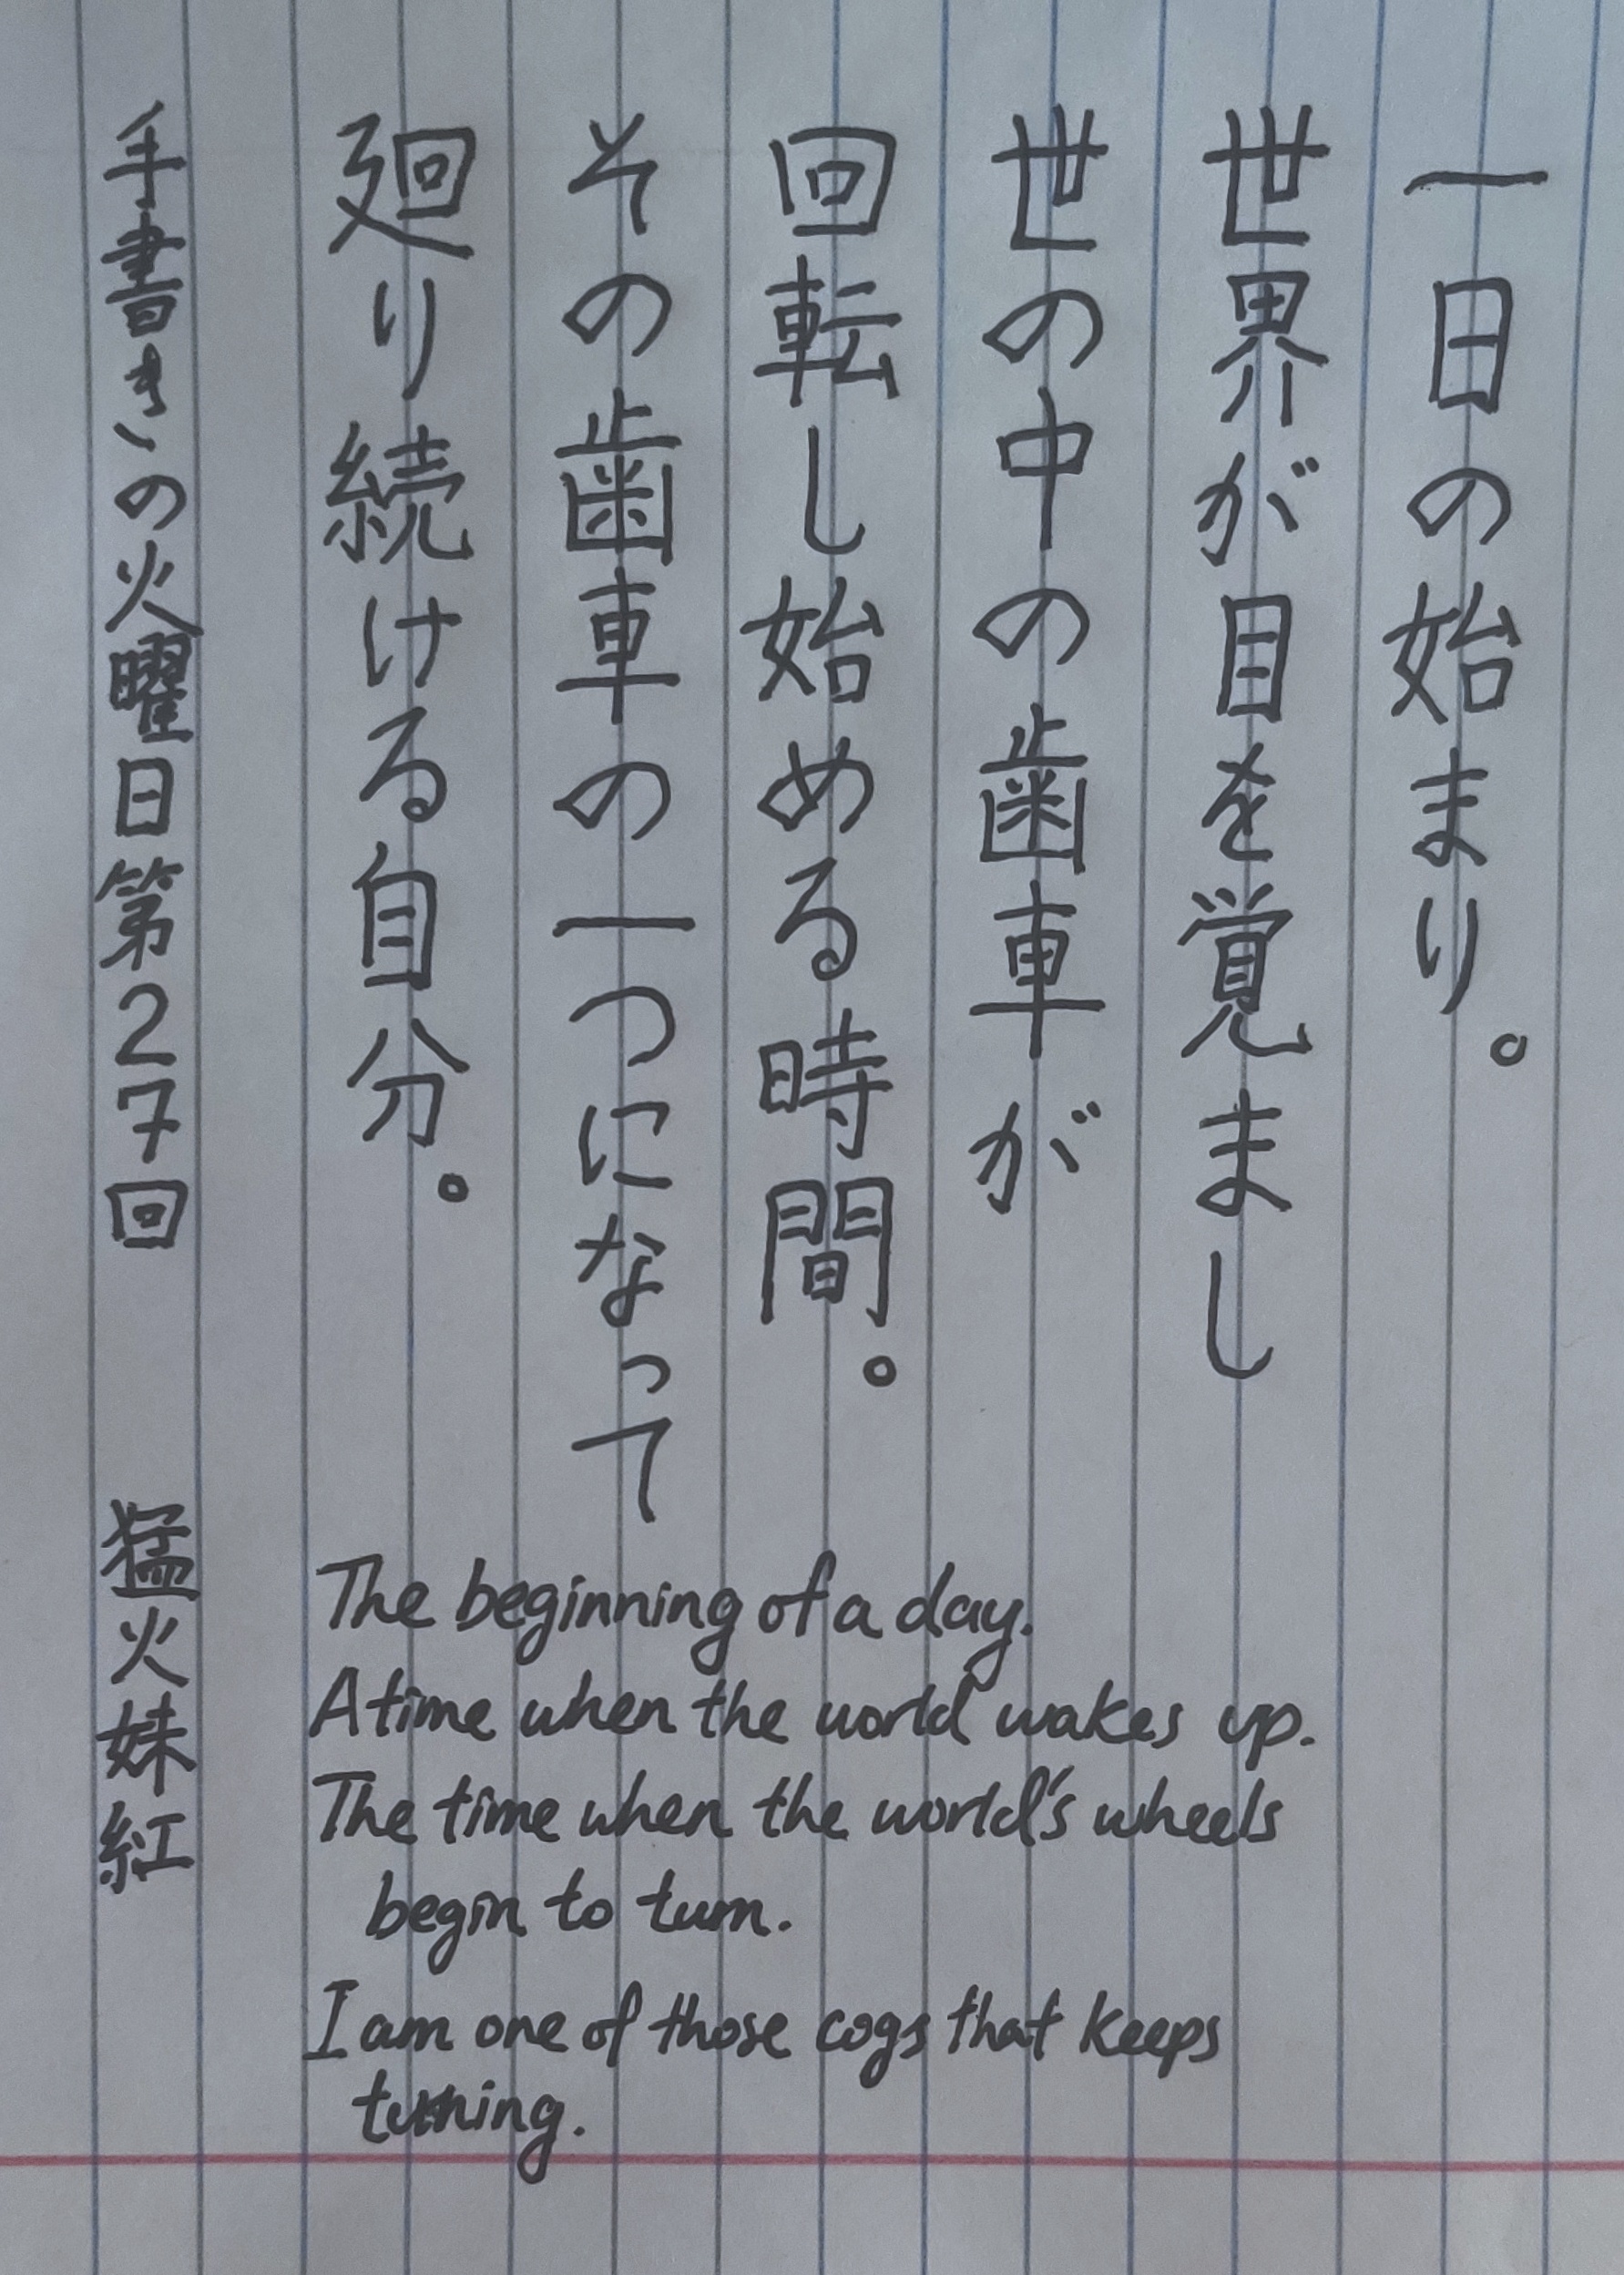 一日の始まり。
世界が目を覚まし
世の中の歯車が
回転し始める時間。
その歯車の一つになって
廻り続ける自分。
手書きの火曜日第27回 猛火妹紅
The beginning of a day.
A time when the world wakes up.
The time when the world's wheels
begin to turn.
I am one of those cogs that keeps
turning.